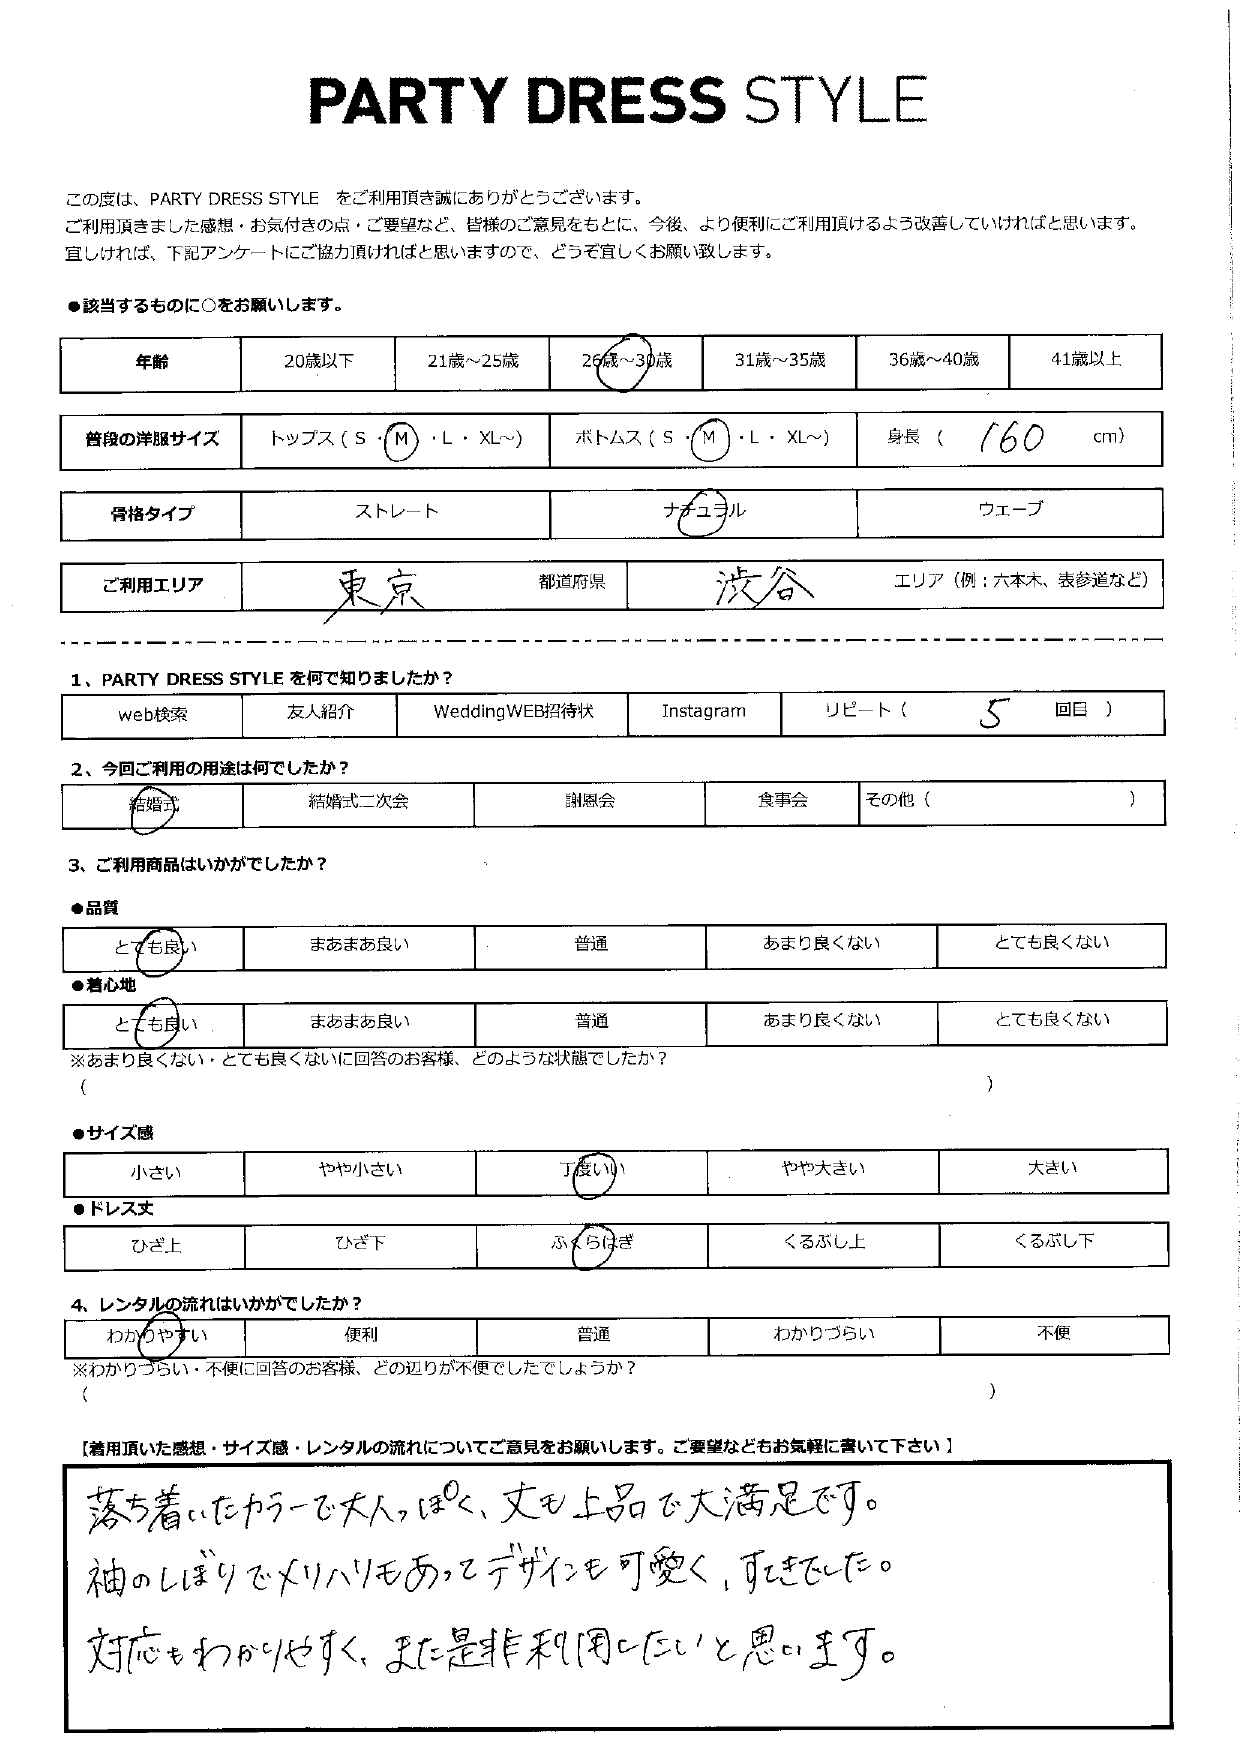 PARTY DRESS STYLE
この度は、PARTY DRESS STYLE をご利用頂き誠にありがとうございます。
ご利用頂きました感想・お気付きの点・ご要望など、皆様のご意見をもとに、今後、より便利にご利用頂けるよう改善していければと思います。
宜しければ、下記アンケートにご協力頂ければと思いますので、どうぞ宜しくお願い致します。
●該当するものに○をお願いします。
年齢 20歳以下 21歳～25歳 26歳～30歳 31歳～35歳 36歳～40歳 41歳以上
普段の洋服サイズ トップス（ S ・ M ・ L ・ XL～） ボトムス（ S ・ M ・ L ・ XL～） 身長（ 160 cm）
骨格タイプ ストレート ナチュラル ウェーブ
ご利用エリア 東京 都道府県 渋谷 エリア（例：六本木、表参道など）
1、PARTY DRESS STYLE を何で知りましたか？
web検索 友人紹介 WeddingWEB招待状 Instagram リピート（ 5 回目 ）
2、今回ご利用の用途は何でしたか？
結婚式 結婚式二次会 謝恩会 食事会 その他（ ）
3、ご利用商品はいかがでしたか？
●品質
とても良い まあまあ良い 普通 あまり良くない とても良くない
●着心地
とても良い まあまあ良い 普通 あまり良くない とても良くない
※あまり良くない・とても良くないに回答のお客様、どのような状態でしたか？
（ ）
●サイズ感
小さい やや小さい 丁度いい やや大きい 大きい
●ドレス丈
ひざ上 ひざ下 ふくらはぎ くるぶし上 くるぶし下
4、レンタルの流れはいかがでしたか？
わかりやすい 便利 普通 わかりづらい 不便
※わかりづらい・不便に回答のお客様、どの辺りが不便でしたでしょうか？
（ ）
【着用頂いた感想・サイズ感・レンタルの流れについてご意見をお願いします。ご要望などもお気軽に書いて下さい】
落ち着いたカラーで大人っぽく、丈も上品で大満足です。
袖のしぼりでメリハリもあってデザインも可愛く、すてきでした。
対応もわかりやすく、また是非利用したいと思います。